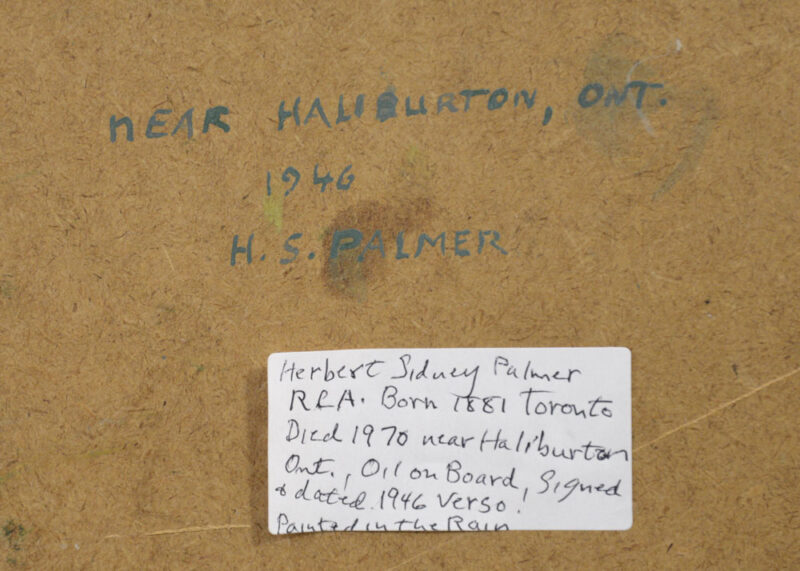 nEAR HALIBURTON, ONT.
1946
H. S. PALMER
Herbert Sidney Palmer
RCA. Born 1881 Toronto
Died 1970 near Haliburton
Ont., Oil on Board, Signed
& dated 1946 Verso.
Painted in the Rain